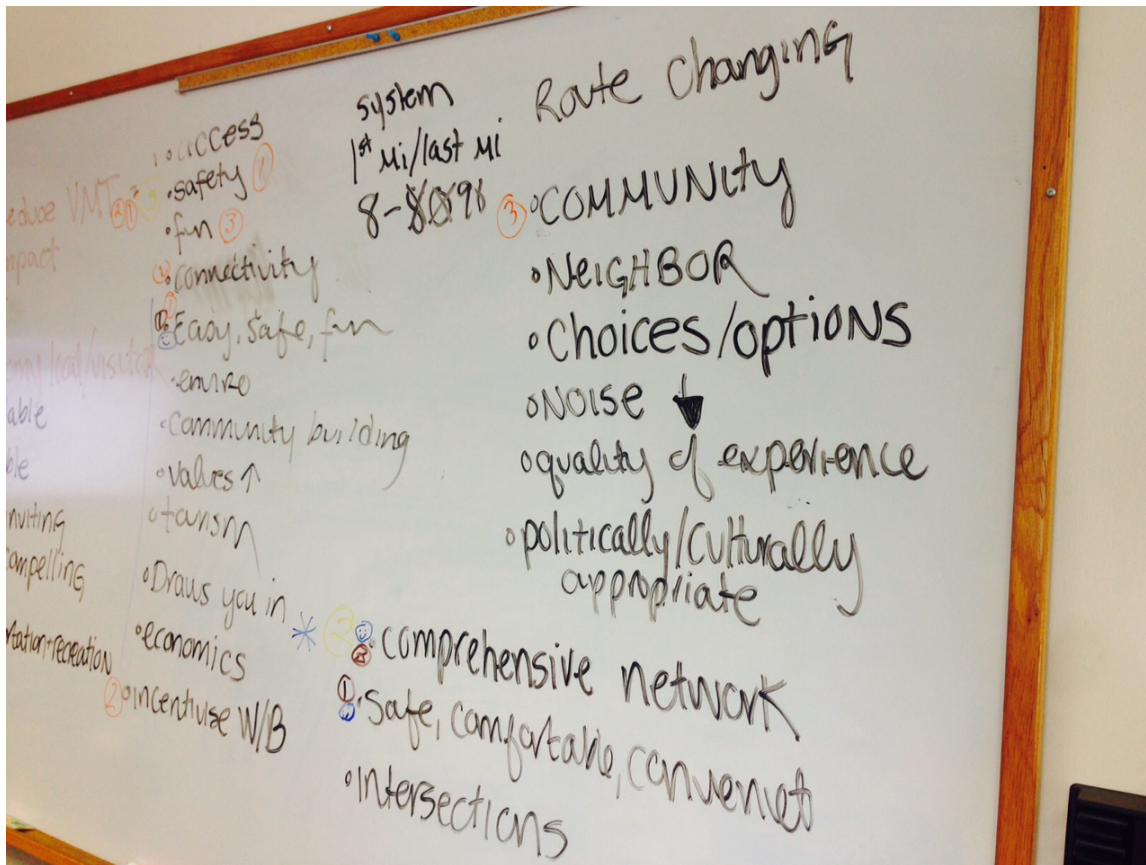 educe VMT
mpact
able
ble
nviting
ompelling
rtation+recreation
access
safety ①
fun ③
connectivity
Easy, safe, fun
enviro
Community building
values ↑
tourism
Draws you in
economics
② incentivise W/B
system
1st Mi/last Mi
8-80 98
Route Changing
③ COMMUNITY
NEIGHBOR
Choices/options
NOISE ↓
quality of experience
politically/culturally
appropriate
② comprehensive network
① Safe, comfortable, convenient
intersections